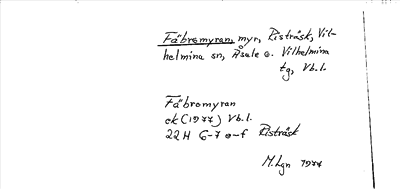 Fäbromyran, myr, Risträsk, Vil-
helmina sn, Åsele o. Vilhelmina
tg, Vb.l.
Fäbromyran
ek (1977) Vb.l.
22 H 6-7 e-f Risträsk
M. Lgn 1974